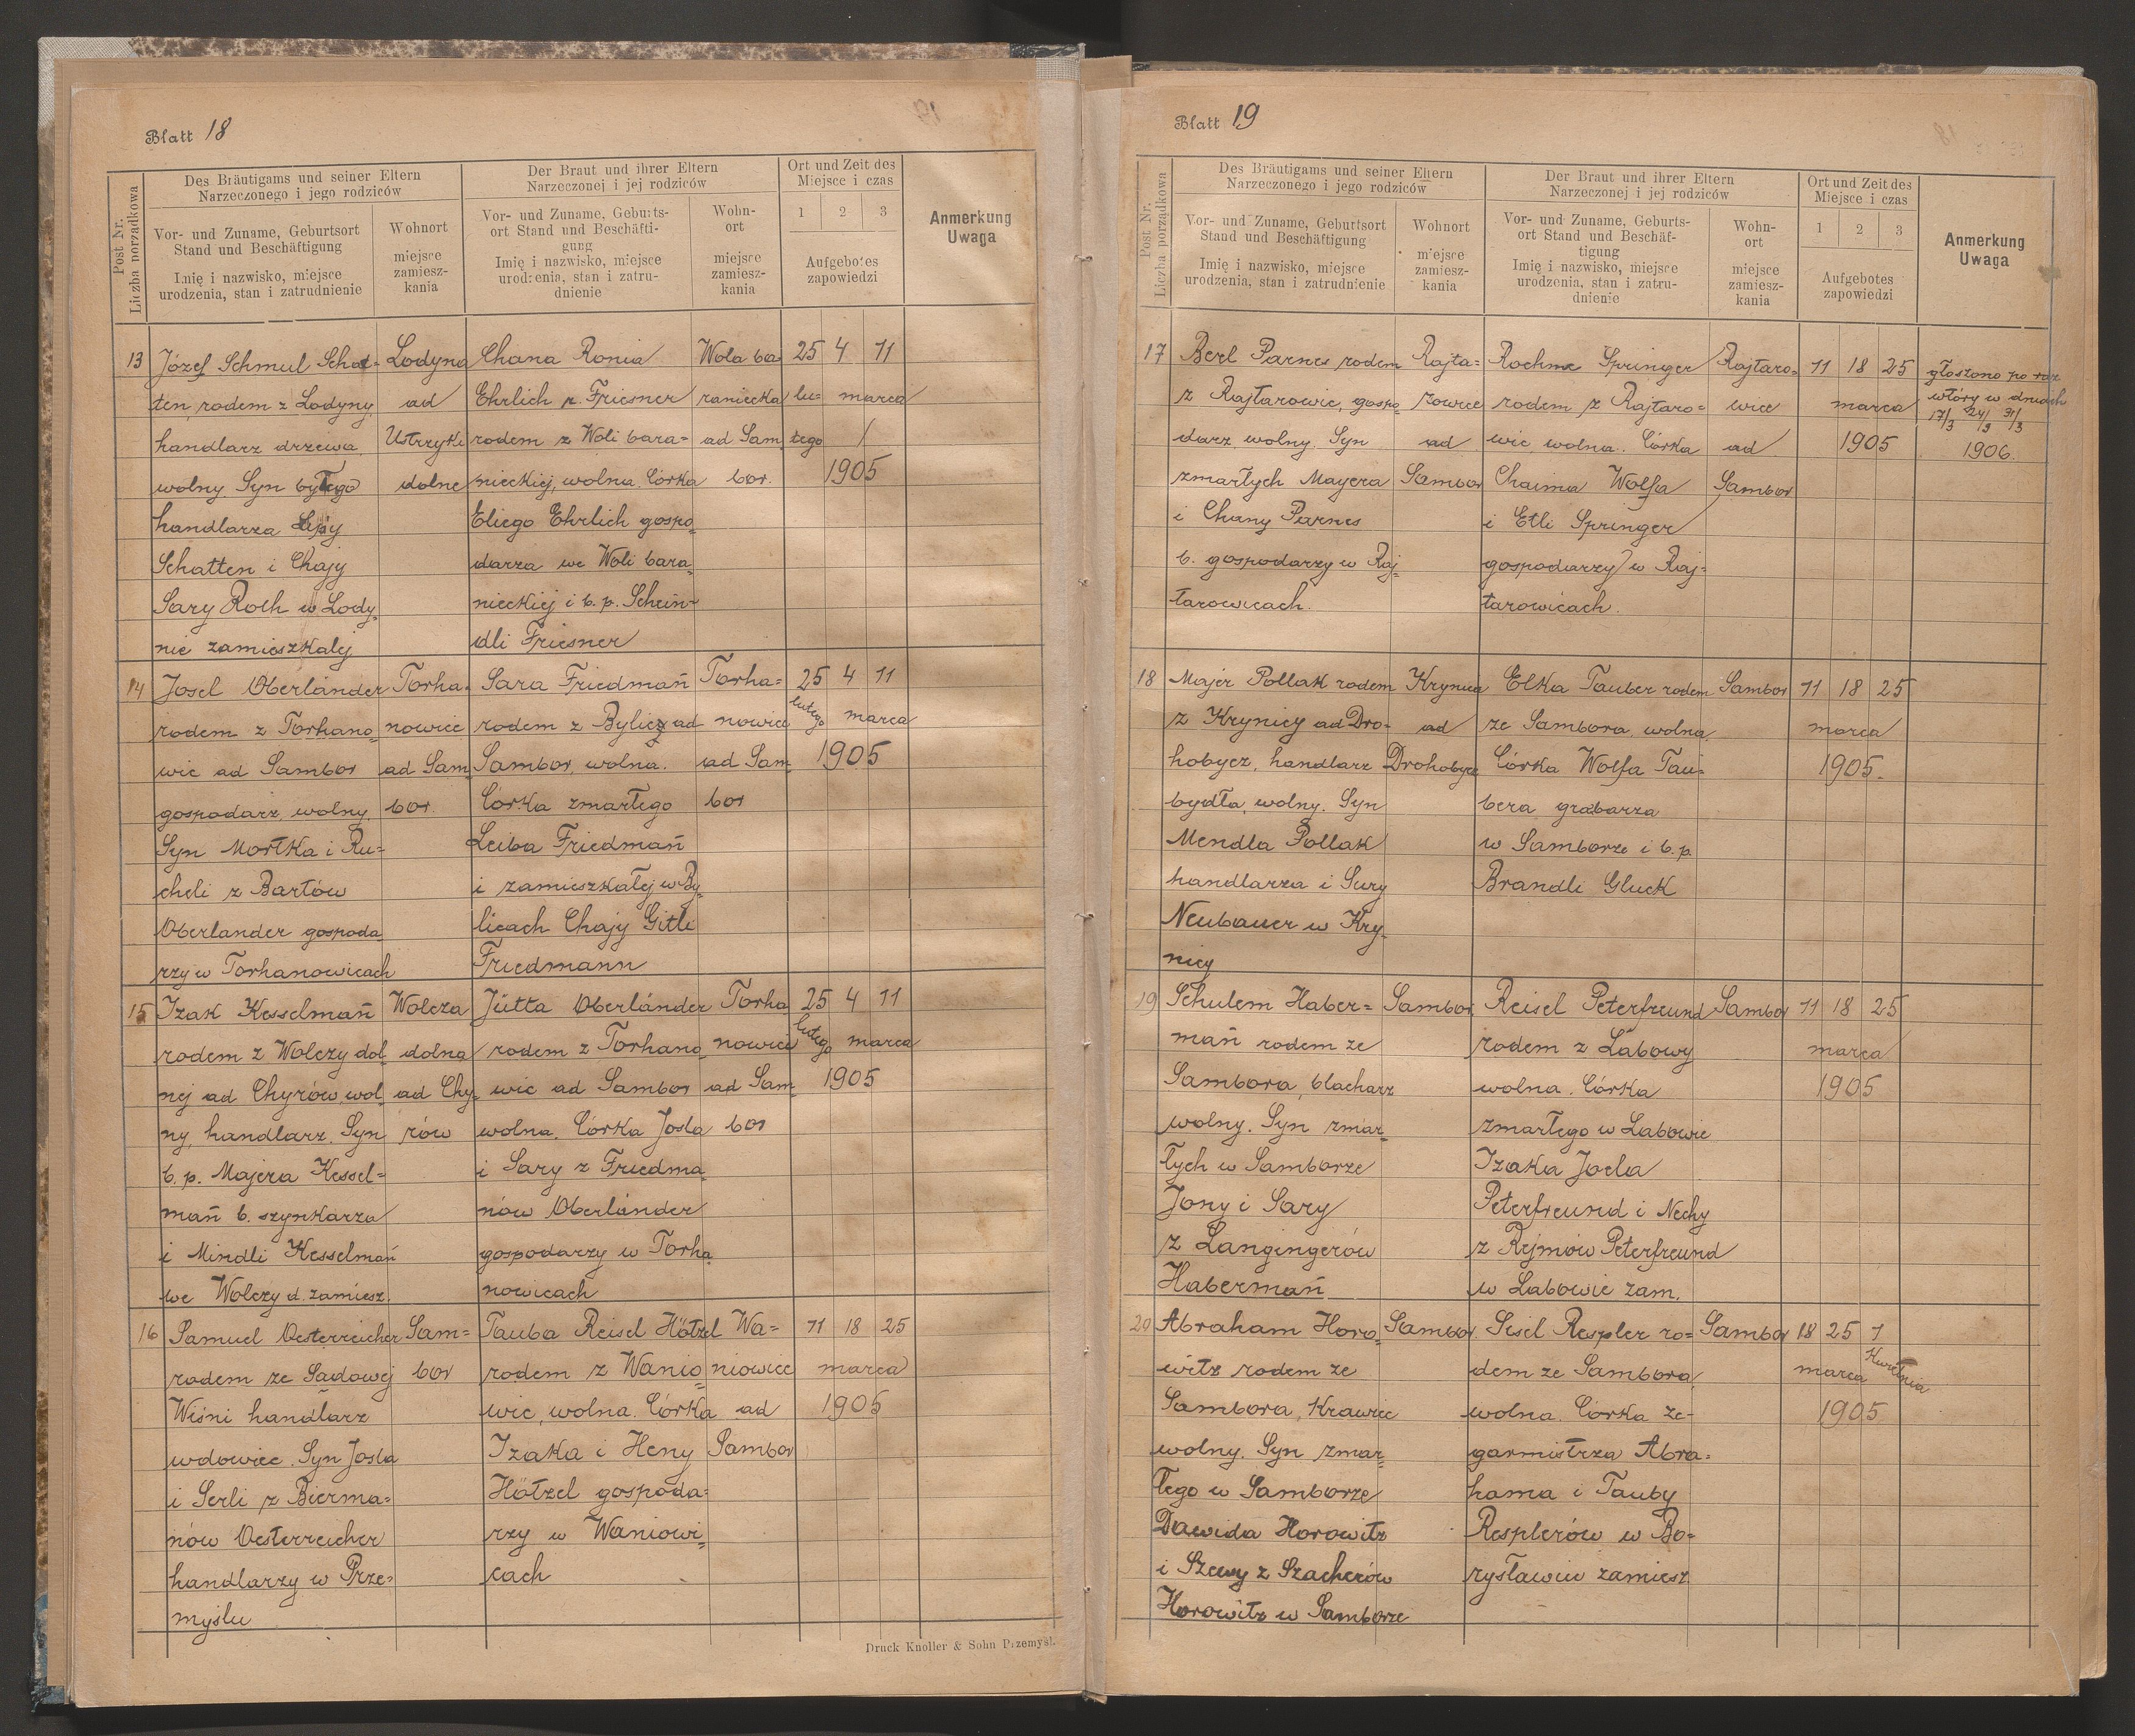 Blatt 18
Post Nr.
Liczba porządkowa
Des Bräutigams und seiner Eltern
Narzeczonego i jego rodziców
Vor- und Zuname, Geburtsort
Stand und Beschäftigung
Imię i nazwisko, miejsce
urodzenia, stan i zatrudnienie
Wohnort
miejsce
zamiesz-
kania
Der Braut und ihrer Eltern
Narzeczonej i jej rodziców
Vor- und Zuname, Geburts-
ort Stand und Beschäfti-
gung
Imię i nazwisko, miejsce
urodzenia, stan i zatru-
dnienie
Wohn-
ort
miejsce
zamiesz-
kania
Ort und Zeit des
Miejsce i czas
1 2 3
Aufgebotes
zapowiedzi
Anmerkung
Uwaga
13
Józef Schmul Schat-
ten, rodem z Lodyny
handlarz drzewa
wolny. Syn byłego
handlarza
Schatten i Chajy
Sary Roth w Lody-
nie zamieszkałej
Lodyna
ad
Ustrzyki
dolne
Chana Ronia
Ehrlich r. Friesner
rodem z Woli bara-
nieckiej, wolna. Córka
Eliego Ehrlich gospo-
darza we Woli bara-
nieckiej i b. p. Schein-
dli Friesner
Wola ba
raniecka
ad Sam
bor.
25 4 11
lu- marca
tego
1905
14
Josel Oberländer
rodem z Torhano-
wic ad Sambor
gospodarz, wolny.
Syn Mortka i Ru-
cheli z Bartów
Oberlander gospoda
rzy w Torhanowicach
Torha-
nowice
ad Sam-
bor.
Sara Friedman̄
rodem z Bylicz ad
Sambor, wolna.
Córka zmarłego
Leiba Friedman̄
i zamieszkałej w By-
licach Chajy Gitli
Friedmann
Torha-
nowice
ad Sam-
bor
25 4 11
lutego marca
1905
15
Izak Kesselman̄
rodem z Wolczy dol
nej ad Chyrów, wol-
ny, handlarz. Syn
b. p. Majera Kessel-
man̄ b. szynkarza
i Mindli Kesselman̄
we Wolczy d. zamiesz.
Wolcza
dolna
ad Chy-
rów
Jütta Oberländer
rodem z Torhano-
wic ad Sambor
wolna. Córka Josla
i Sary z Friedma
nów Oberländer
gospodarzy w Torha
nowicach
Torha
nowice
ad Sam-
bor
25 4 11
lutego marca
1905
16
Samuel Oesterreicher
rodem ze Sadowej
Wiśni handlarz
wdowiec. Syn Josla
i Serli z Bierma-
nów Oesterreicher
handlarzy w Prze-
myślu
Sam-
bor
Tauba Reisel Hötzel
rodem z Wanio-
wic, wolna. Córka
Izaka i Heny
Hötzel gospoda-
rzy w Waniowi-
cach
Wa-
niowice
ad
Sambor
11 18 25
marca
1905
Druck Knoller & Sohn Przemyśl.
Blatt 19
Post Nr.
Liczba porządkowa
Des Bräutigams und seiner Eltern
Narzeczonego i jego rodziców
Vor- und Zuname, Geburtsort
Stand und Beschäftigung
Imię i nazwisko, miejsce
urodzenia, stan i zatrudnienie
Wohnort
miejsce
zamiesz-
kania
Der Braut und ihrer Eltern
Narzeczonej i jej rodziców
Vor- und Zuname, Geburts-
ort Stand und Beschäf-
tigung
Imię i nazwisko, miejsce
urodzenia, stan i zatru-
dnienie
Wohn-
ort
miejsce
zamiesz-
kania
Ort und Zeit des
Miejsce i czas
1 2 3
Aufgebotes
zapowiedzi
Anmerkung
Uwaga
17
Berl Parnes rodem
z Rajtarowic, gospo-
darz wolny. Syn
zmarłych Mayera
i Chany Parnes
b. gospodarzy w Raj-
tarowicach.
Rajta-
rowice
ad
Sambor
Rochme Springer
rodem z Rajtaro-
wic, wolna. Córka
Chaima Wolfa
i Etli Springer
gospodarzy w Raj-
tarowicach.
Rajtaro-
wice
ad
Sambor
11 18 25
marca
1905
głoszono po raz
wtóry w dniach
17/3 24/3 31/3
1906.
18
Majer Pollak rodem
z Krynicy ad Dro-
hobycz, handlarz
bydła, wolny. Syn
Mendla Pollak
handlarza i Sury
Neubauer w Kry-
nicy
Krynica
ad
Drohobycz
Elka Tauber rodem
ze Sambora, wolna.
Córka Wolfa Tau-
bera grabarza
w Samborze i b. p.
Brandli Gluck
Sambor
11 18 25
marca
1905.
19
Schulem Haber-
man̄ rodem ze
Sambora, blacharz
wolny. Syn zmar-
łych w Samborze
Jony i Sary
z Langingerów
Haberman̄
Sambor.
Reisel Peterfreund
rodem z Labowy
wolna. Córka
zmarłego w Labowie
Izaka Joela
Peterfreund i Nechy
z Rejmów Peterfreund
w Labowie zam.
Sambor
11 18 25
marca
1905
20
Abraham Horo-
witz rodem ze
Sambora, Krawiec
wolny. Syn zmar-
łego w Samborze
Dawida Horowitz
i Szewy z Szacherów
Horowitz w Samborze
Sambor.
Sesel Respler ro-
dem ze Sambora,
wolna. Córka ze-
garmistrza Abra-
hama i Tauby
Resplerów w Bo-
rysławiu zamiesz.
Sambor
18 25 1
marca Kwietnia
1905